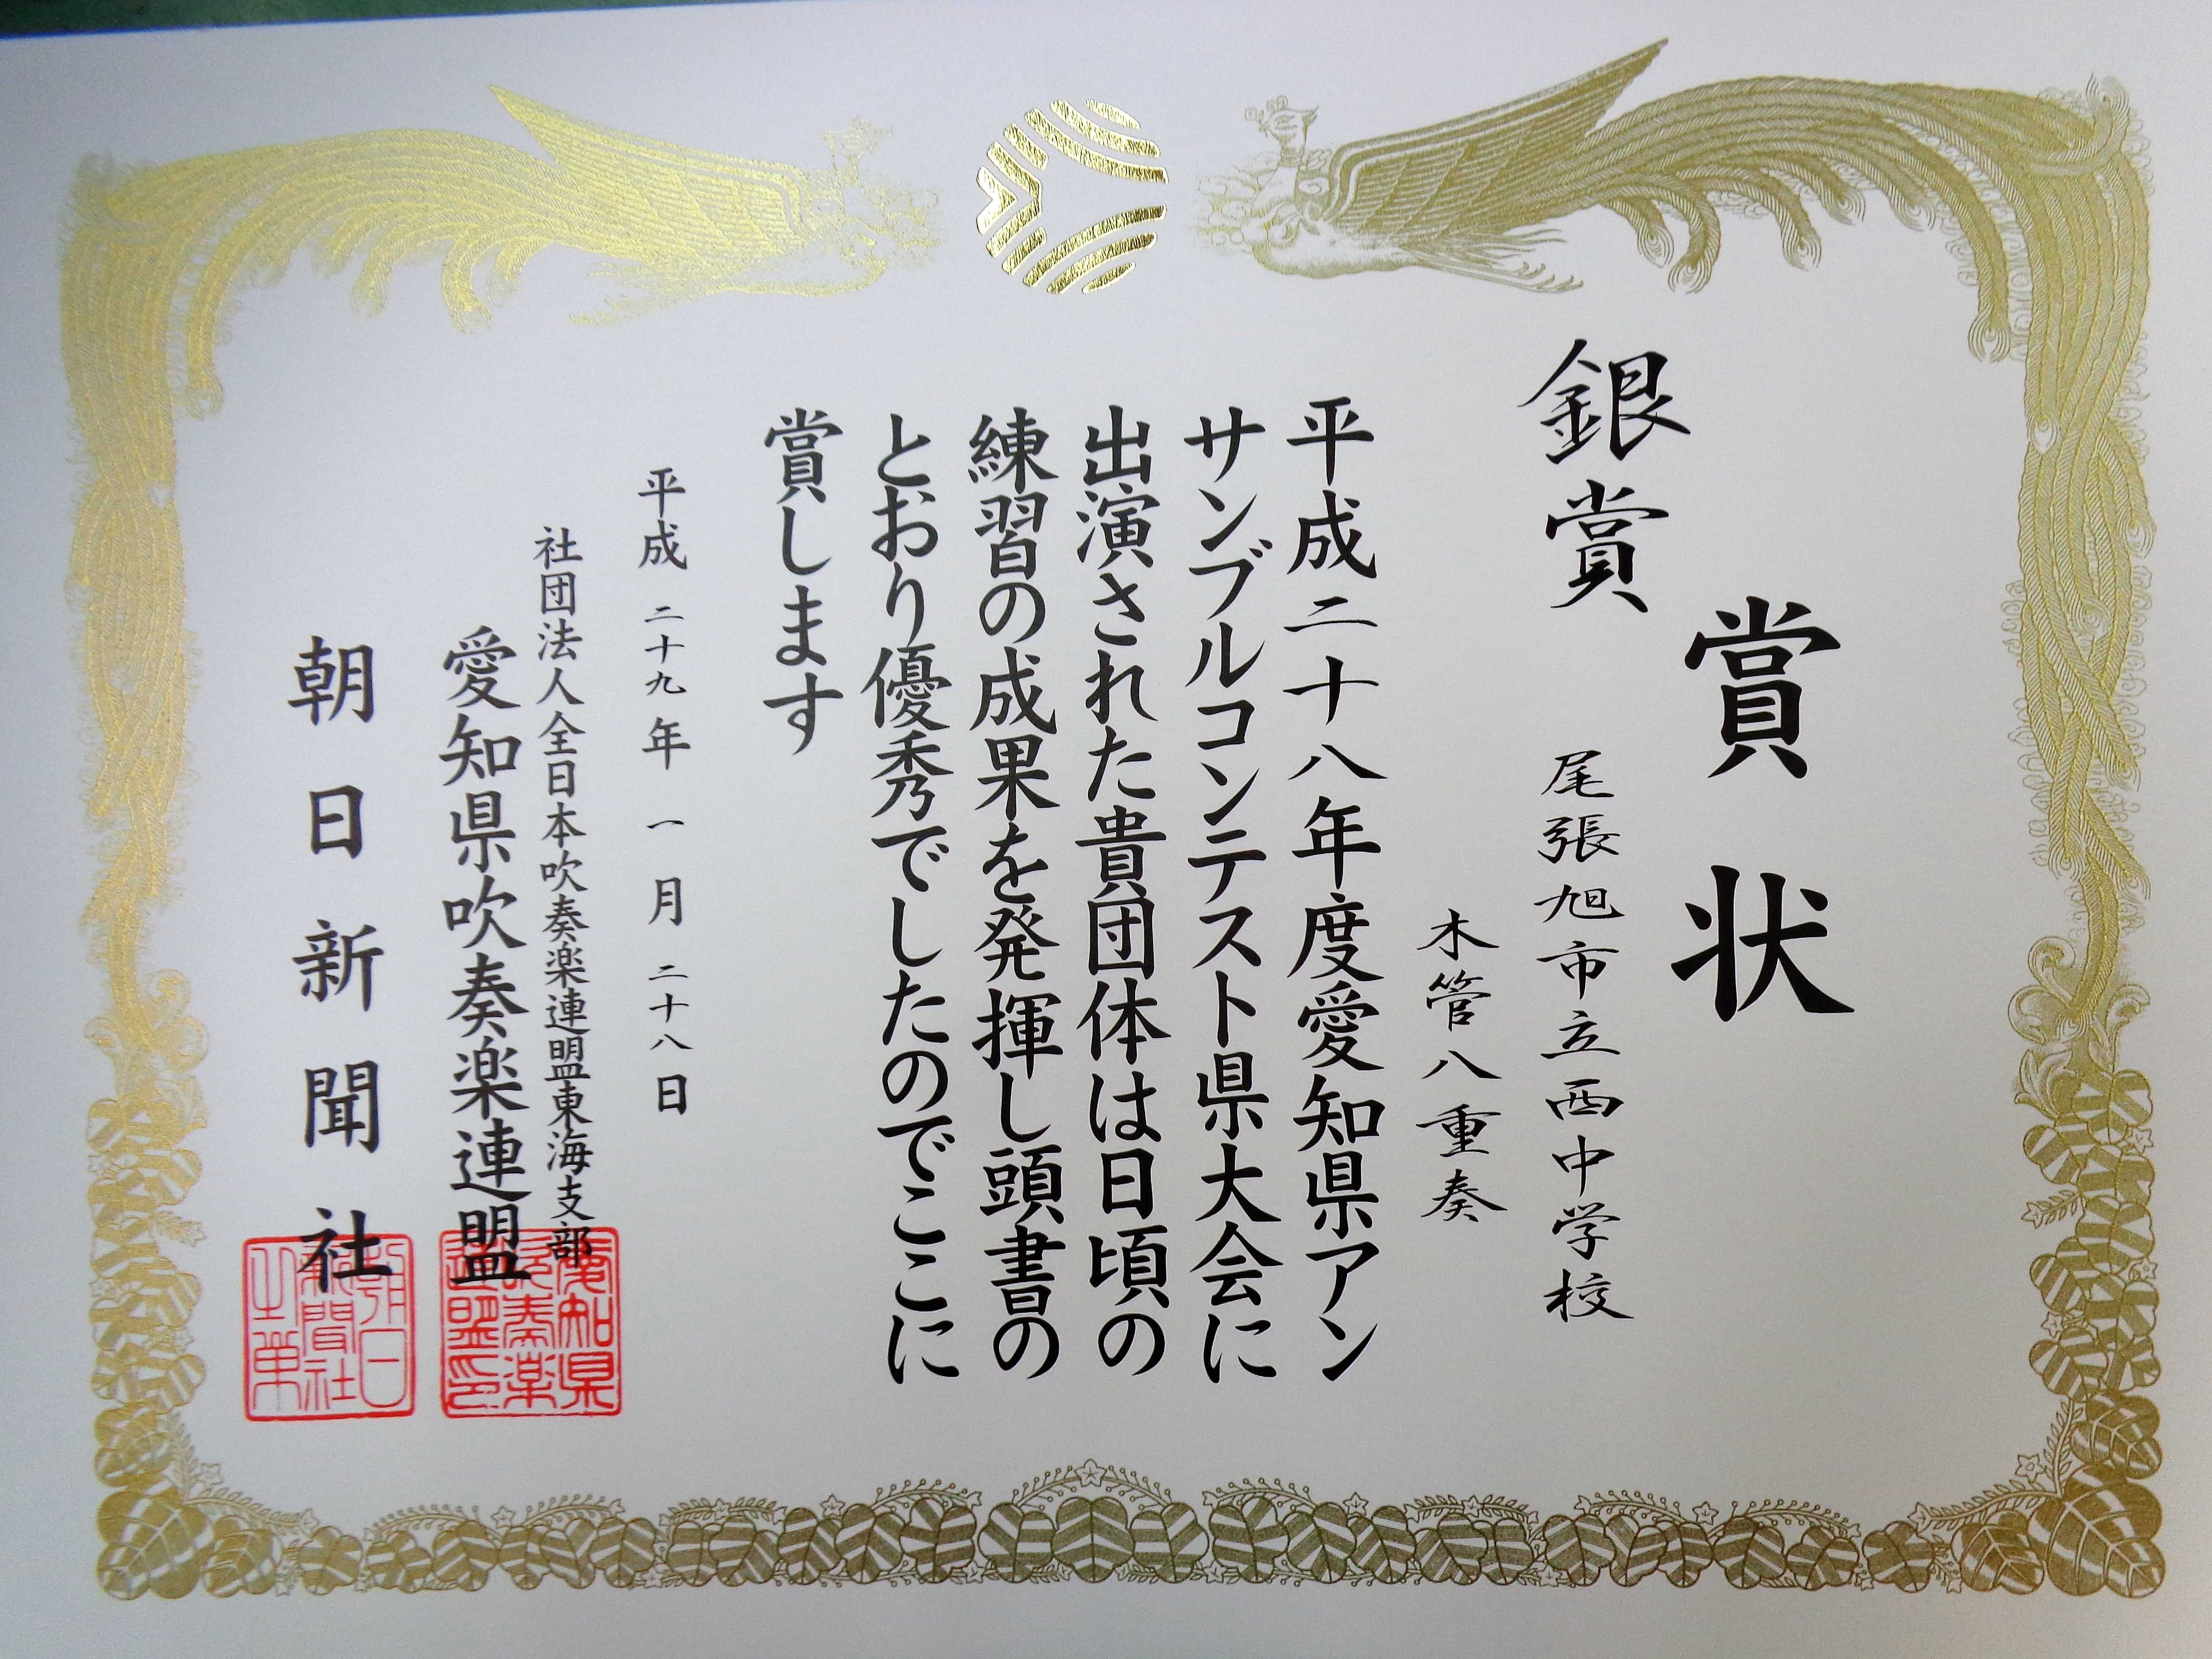 賞状
銀賞
尾張旭市立西中学校
木管八重奏
平成二十八年度愛知県アン
サンブルコンテスト県大会に
出演された貴団体は日頃の
練習の成果を発揮し頭書の
とおり優秀でしたのでここに
賞します
平成二十九年一月二十八日
社団法人全日本吹奏楽連盟東海支部
愛知県吹奏楽連盟
愛知県
吹奏楽
連盟印
朝日新聞社
朝日
新聞社